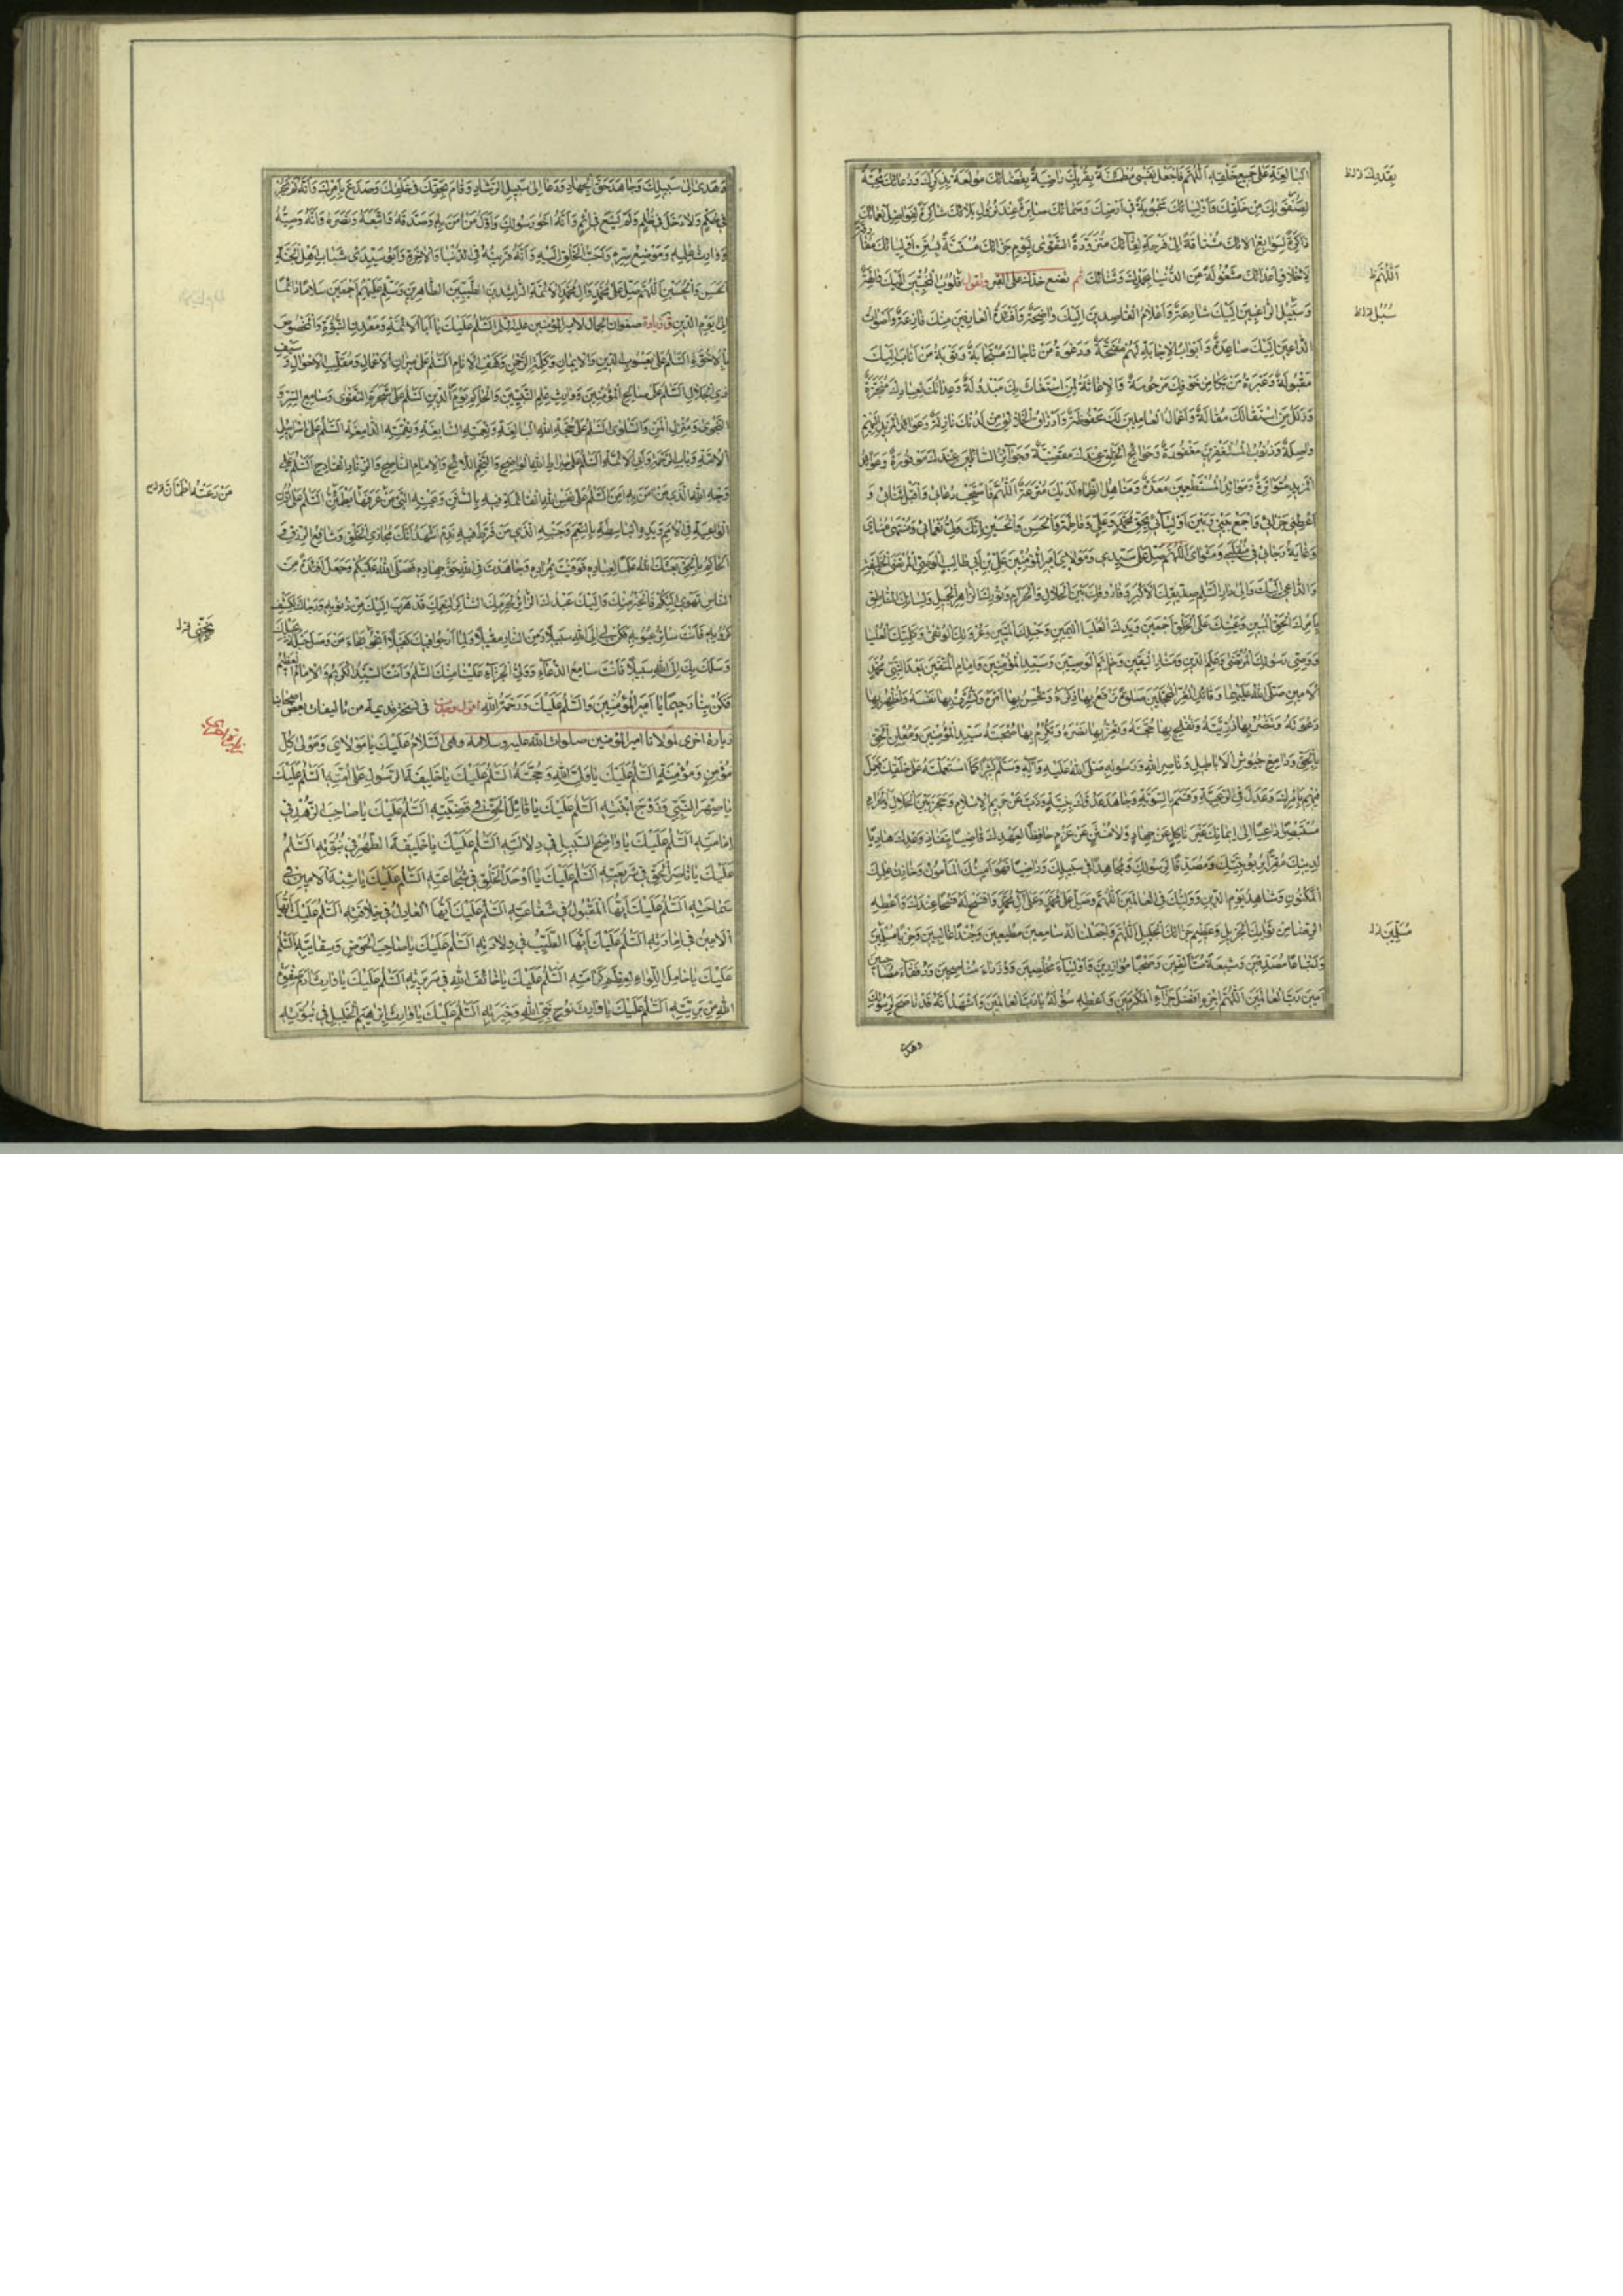 البالغة على جميع خلقه اللهم فاجعل نفسي مطمئنة بقدرك راضية بقضائك مولعة بذكرك ودعائك محبة
لصفوة من خلقك وأوليائك محبوبة في أرضك وسمائك صابرة عند نزول بلائك شاكرة لفواضل نعمائك
ذاكرة لسوابغ آلائك مشتاقة إلى فرحة لقائك متزودة التقوى ليوم جزائك مستنة بسنن أوليائك مفارقة
لأخلاق أعدائك مشغولة عن الدنيا بحمدك وثنائك ثم تضع خدك على القبر وتقول قلوب المخبتين إليك والهة
وسبيل الراغبين إليك شارعة وأعلام القاصدين إليك واضحة وأفئدة العارفين منك فازعة وأصوات
الداعين إليك صاعدة وأبواب الإجابة لهم مفتحة ودعوة من ناجاك مستجابة وتوبة من أناب إليك
مقبولة وعبرة من بكا من خوفك مرحومة والإغاثة لمن استغاث بك مبذولة وعداتك لعبادك منجزة
وزلل من استقالك مقالة وأعمال العاملين لديك محفوظة وأرزاق الخلائق من لدنك نازلة وعوائد المزيد إليهم
واصلة وذنوب المستغفرين مغفورة وحوائج الخلق عندك مقضية وجوائز السائلين عندك موفورة وعوائد
المزيد متواترة وموائد المستطعمين معدة ومناهل الظماء لديك مترعة اللهم فاستجب دعائي واقبل ثنائي و
أعطني جزائي واجمع بيني وبين أوليائي بحق محمد وعلي وفاطمة والحسن والحسين إنك ولي نعمائي ومنتهى مناي
وغاية رجائي في منقلبي ومثواي اللهم صل على سيدي ومولاي أمير المؤمنين علي بن أبي طالب الوصي المرتضى الخليفة
والداعي إليك وإلى دار السلام صديقك الأكبر وفاروقك بين الحلال والحرام ونورك الزاهر الجميل ولسانك الناطق
بأمرك الحق المبين وعينك على الخلق أجمعين ويدك العليا اليمين وحبلك المتين وعروتك الوثقى وكلمتك العليا
ووصي رسولك المرتضى وعلم الدين ومنار اليقين وخاتم الوصيين وسيد المؤمنين وإمام المتقين بعد النبي محمد
الأمين صلى الله عليهما وقائد الغر المحجلين صلوة ترفع بها ذكره وتحسن بها أمره وتشرف بها نفسه وتظهر بها
دعوته وتنصر بها ذريته وتفلج بها حجته وتعز بها نصره وتكرم بها صحبته سيد المؤمنين ومعلن الحق
بالحق ودامغ جيوش الأباطيل وناصر الله ورسوله صلى الله عليه وآله وسلم كثيرا كما استعملته على خلقك فعمل
فيهم بأمرك وعدل في الرعية وقسم بالسوية وجاهد عدوك بنيته وذب عن حريم الإسلام وحجز بين الحلال والحرام
مستبصرا داعيا إلى إيمانك غير ناكل عن جهاد ولا منثن عن عزم حافظا لعهدك قاضيا بنفاذ وعدك هاديا
لدينك مقرا بربوبيتك ومصدقا لرسولك ومجاهدا في سبيلك وراضيا فهو أمينك المأمون وخازن علمك
المكنون وشاهد يوم الدين ووليك في العالمين اللهم وصل على محمد وعلى آل محمد وافتح له فتحا عندك وأعطه
الرضا من ثوابك الجزيل وعظيم جزائك الجليل اللهم واجعلنا له سامعين مطيعين وجندا غالبين وحزبا مسلمين
وأتباعا مصدقين وشيعة متألفين وصحبا موازرين وأولياء مخلصين ووزراء مناصحين ورفقاء مصاحبين
آمين رب العالمين اللهم اجزه أفضل جزاء المكرمين وأعطه سؤله يا رب العالمين وأشهد أنه قد ناصح لرسولك
وهدى
بقدرك
اللهم
سبل
مسلمين
وهدى إلى سبيلك وجاهد حق الجهاد ودعا إلى سبيل الرشاد وقام بحقك في خلقك وصدع بأمرك وأنه لم يجر
في حكم ولا دخل في ظلم ولم يسع في إثم وأنه أخو رسولك وأول من آمن به وصدقه واتبعه ونصره وأنه وصيه
ووارث علمه وموضع سره وأحب الخلق إليه وأنه قرينه في الدنيا والآخرة وأبو سيدي شباب أهل الجنة
الحسن والحسين اللهم صل على محمد وآل محمد الأئمة الراشدين الطيبين الطاهرين وسلم عليهم أجمعين سلاما دائما
إلى يوم الدين زيارة صفوان الجمال لأمير المؤمنين عليه السلام السلم عليك يا أبا الأئمة ومعدن النبوة والمخصوص
بالأخوة السلم على يعسوب الدين والإيمان وكلمة الرحمن وكهف الأنام السلم على ميزان الأعمال ومقلب الأحوال وسيف
ذي الجلال السلم على صالح المؤمنين ووارث علم النبيين والحاكم يوم الدين السلم على شجرة التقوى وسامع السر و
النجوى ومنزل المن والسلوى السلم على حجة الله البالغة ونعمته السابغة ونقمته الدامغة السلم على إسرائيل
الأمة وباب الرحمة وأبي الأئمة السلم على صراط الله الواضح والنجم اللائح والإمام الناصح والزناد القادح السلم على
وجه الله الذي من آمن به أمن السلم على نفس الله القائمة فيه بالسنن وعينه التي من عرفها يطمئن السلم على أذن الله
الواعية في الأمم ويده الباسطة بالنعم وجنبه الذي من فرط فيه ندم أشهد أنك مجازي الخلق وشافع الرزق و
الحاكم بالحق بعثك الله علما لعباده فوفيت بمراده وجاهدت في الله حق جهاده فصلى الله عليكم وجعل أفئدة من
الناس تهوي إليكم فالخير منك وإليك عبدك الزائر لحرمك اللائذ بكرمك الشاكر لنعمك قد هرب إليك من ذنوبه ورجاك لكشف
كروبه فأنت ساتر عيوبه فكن لي إلى الله سبيلا ومن النار مقيلا ولما أرجو فيك كفيلا أنجو نجاة من وصل حبله بحبلك
وسلك بك إلى الله سبيلا فأنت سامع الدعاء وولي الجزاء علينا منك السلم وأنت السيد الكريم والإمام العظيم
فكن بنا رحيما يا أمير المؤمنين والسلم عليك ورحمة الله أقول وجدت في نسخة قديمة من تأليفات بعض أصحابنا
زيارة أخرى لمولانا أمير المؤمنين صلوات الله عليه وسلامه وهي السلام عليك يا مولاي ومولى كل
مؤمن ومؤمنة السلم عليك يا ولي الله وحجته السلم عليك يا خليفة الرسول على أمته السلم عليك
يا صهر النبي وزوج ابنته السلم عليك يا قائل الحق في قضيته السلم عليك يا صاحب الزهد في
إمامته السلم عليك يا واضح السبيل في دلالته السلم عليك يا خليفة الطهر في نبوته السلم
عليك يا ناصر الحق في شريعته السلم عليك يا أوحد الخلق في شجاعته السلم عليك يا شبه الأمين في
سماحته السلم عليك أيها المقبول في شفاعته السلم عليك أيها العادل في خلافته السلم عليك أيها
الأمين في إمارته السلم عليك أيها الطيب في ولادته السلم عليك يا صاحب الحوض وسقايته السلم
عليك يا حامل اللواء لعظم كرامته السلم عليك يا خائف الله في سريرته السلم عليك يا وارث آدم صفوة
الله من بريته السلم عليك يا وارث نوح نبي الله وخيرته السلم عليك يا وارث إبراهيم الخليل في نبوته